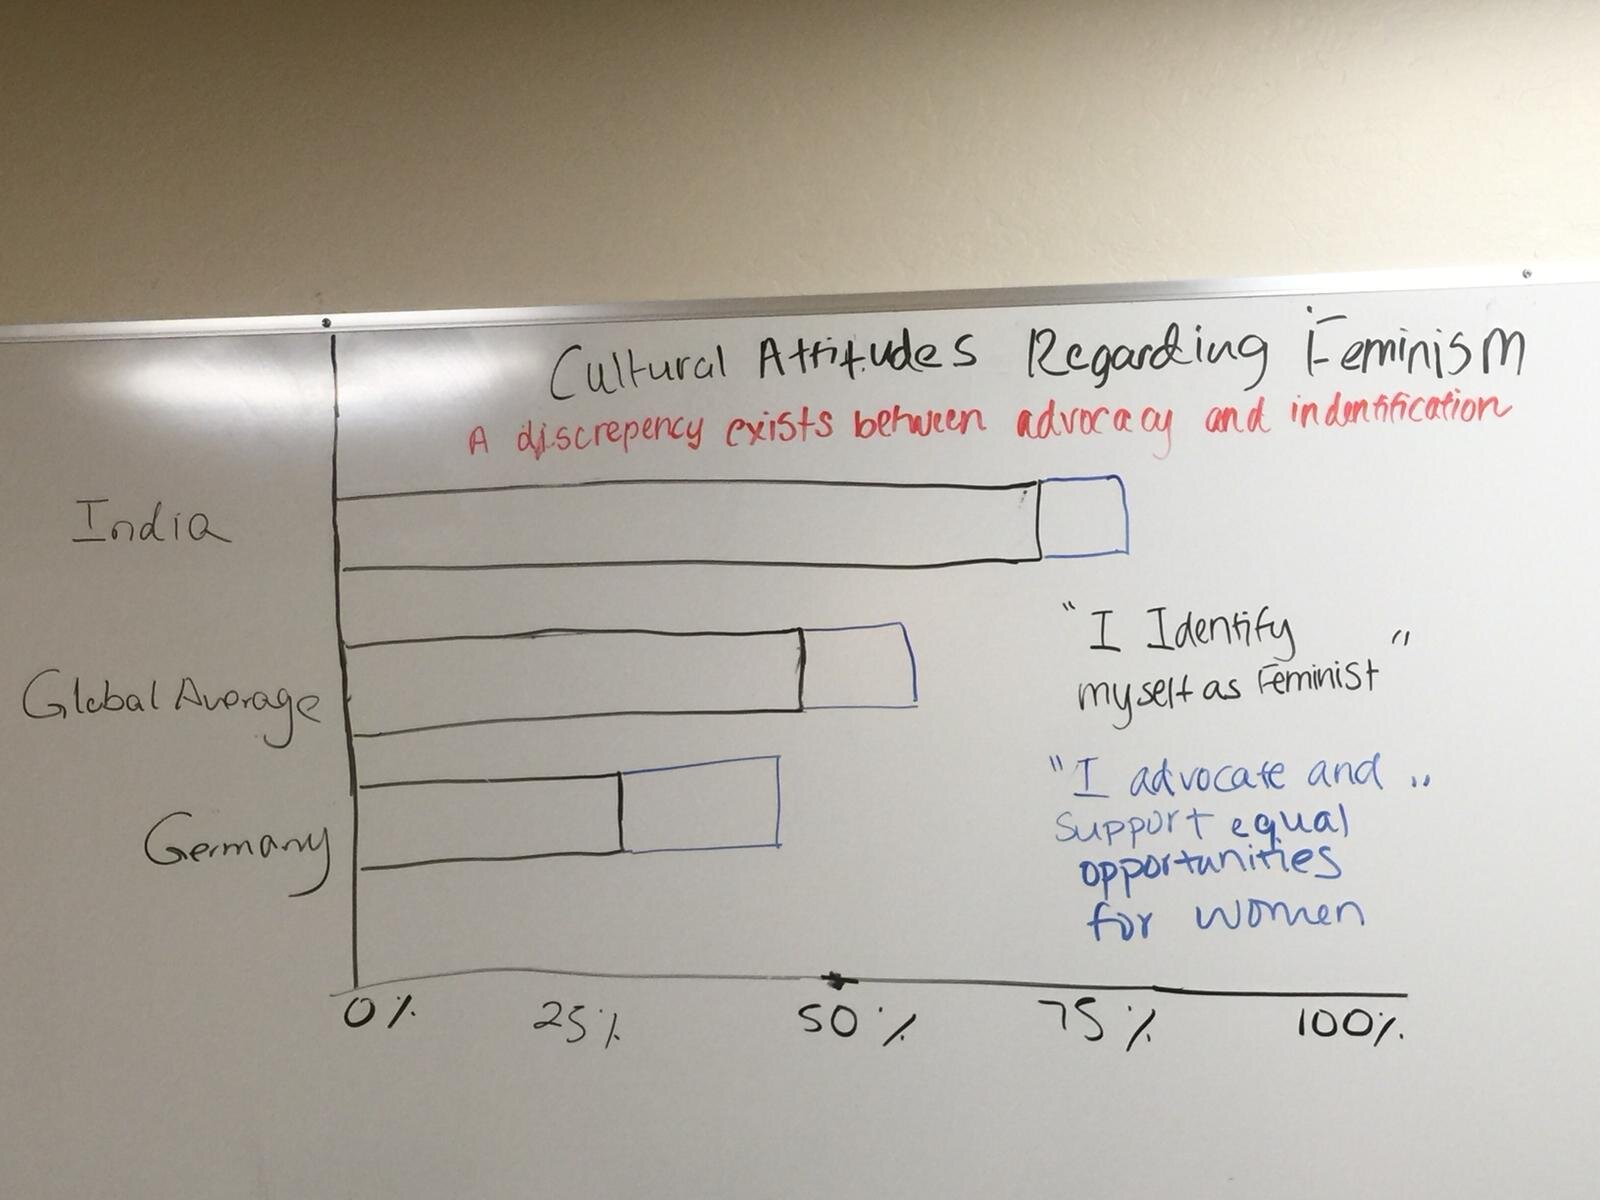 Cultural Attitudes Regarding Feminism
A discrepency exists between advocacy and indentification
India
Global Average
Germany
"I Identify
myself as Feminist"
"I advocate and
support equal
opportunities
for women"
0% 25% 50% 75% 100%